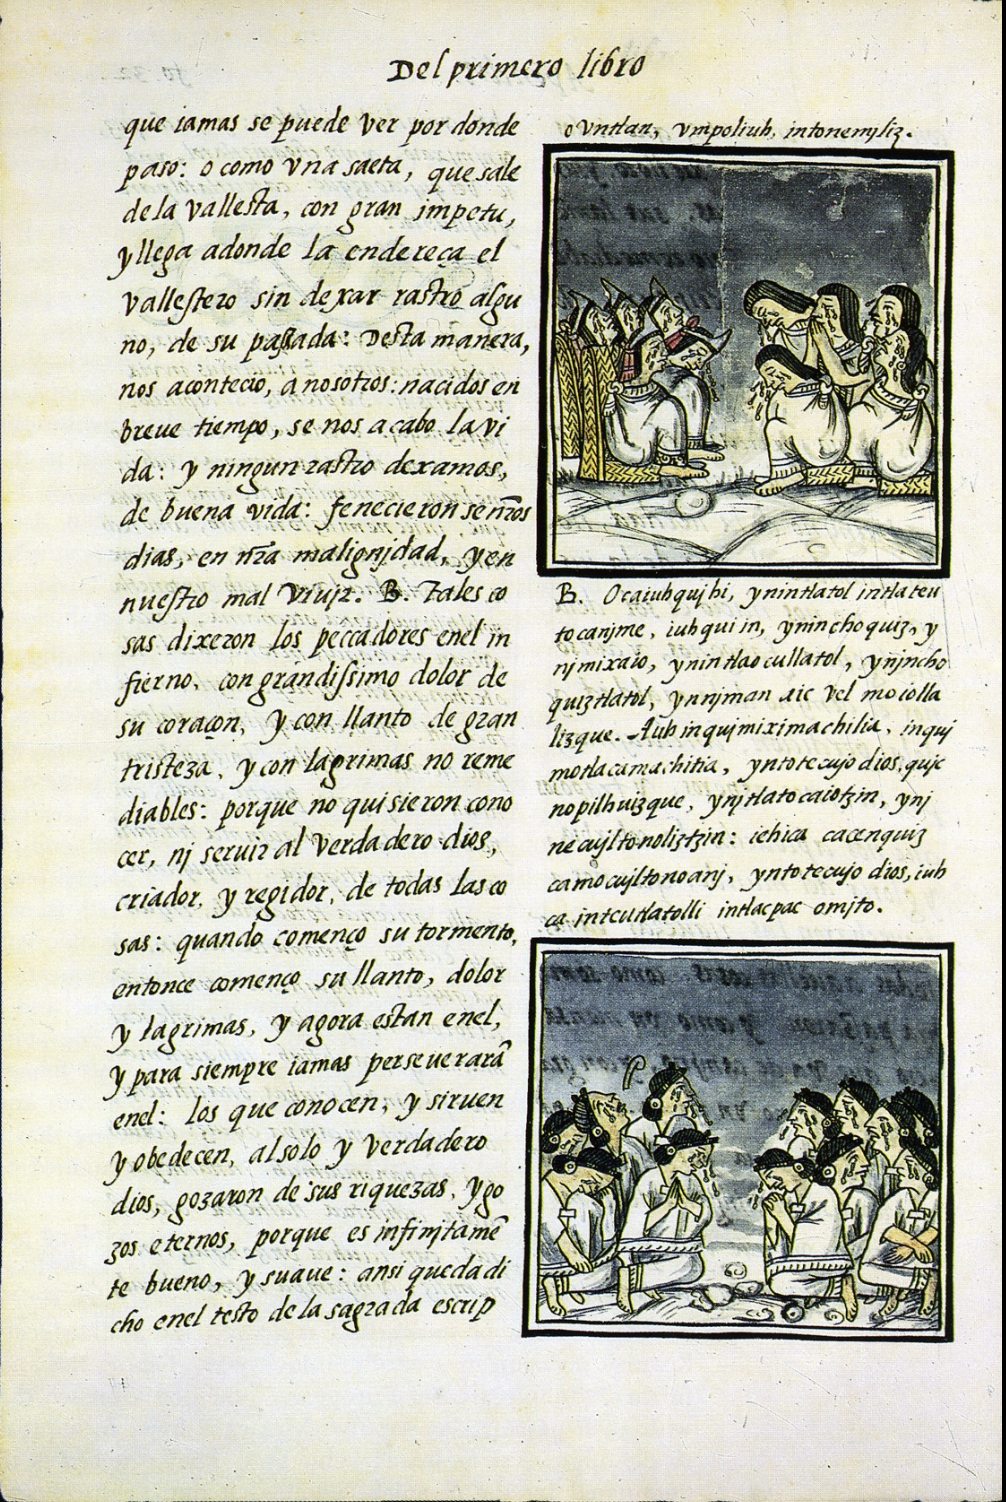 Del primero libro
que iamas se puede ver por donde
paso: o como vna saeta, que sale
de la vallesta, con gran impetu,
y llega adonde la endereça el
vallestero sin dexar rastro algu
no, de su passada: Desta manera,
nos acontecio, a nosotros: nacidos en
breue tiempo, se nos acabo la vi
da: y ningun rastro dexamos,
de buena vida: fenecieronse nr̃os
dias, en nr̃a malignjdad, y en
nuestro mal viujr. B. Tales co
sas dixeron los peccadores enel in
fierno, con grandissimo dolor de
su coraçon, y con llanto de gran
tristeza, y con lagrimas no reme
diables: porque no quisieron cono
cer, nj seruir al verdadero dios,
criador, y regidor, de todas las co
sas: quando començo su tormento,
entonce començo su llanto, dolor
y lagrimas, y agora estan enel,
y para siempre iamas perseuerarã
enel: los que conocen, y siruen
y obedecen, al solo y verdadero
dios, gozaron de sus riquezas, y go
zos eternos, porque es infinjtamẽ
te bueno, y suaue: ansi queda di
cho enel testo de la sagrada escrip
ovntlan, vmpoliuh, intonemjliz.
B. Ocaiuhqujhi, ynintlatol intlateu
tocanjme, iuhqui in, yninchoquiz, y
njmixaio, ynintlaocullatol, ynjncho
quiztlatol, ynnjman aic vel mocolla
lizque. Auh inquimiximachilia, inquj
motlacamachitia, yntotecujo dios, qujc
nopilhuizque, ynjtlatocaiotzin, ynj
necujltonoliztzin: iehica cacenquiz
camocujltonoanj, yntotecujo dios, iuh
ca inteutlatolli intlacpac omjto.